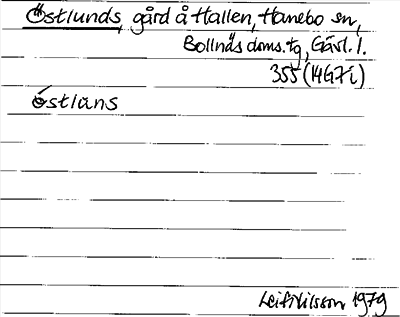 Östlunds, gård å Hallen, Hanebo sn,
Bollnäs doms.tg, Gävl. l.
355 (14G7i)
östluns
Leif Nilsson 1979